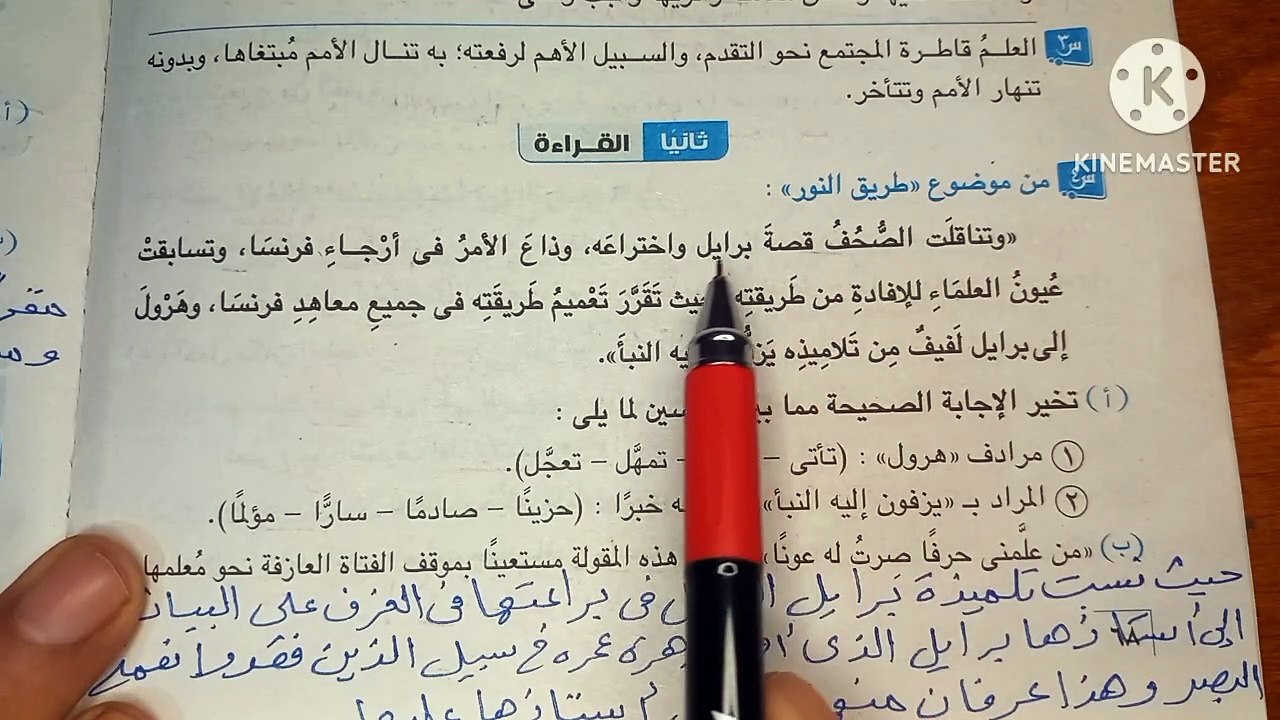 س٣ العلمُ قاطرة المجتمع نحو التقدم، والسبيل الأهم لرفعته؛ به تنال الأمم مُبتغاها، وبدونه
تنهار الأمم وتتأخر.
K
KINEMASTER
ثانيًا القراءة
س٤ من موضوع «طريق النور» :
«وتناقلَت الصُّحُفُ قصةَ برايل واختراعَه، وذاعَ الأمرُ فى أرْجاءِ فرنسَا، وتسابقتْ
عُيونُ العلمَاءِ للإفادةِ من طَريقتِه تَقَرَّرَ تَعْميمُ طَريقَتِه فى جميعِ معاهِدِ فرنسَا، وهَرْولَ
إلى برايل لَفيفٌ مِن تَلامِيذِه النبأ».
(أ) تخير الإجابة الصحيحة مما لما يلى :
١ مرادف «هرول» : (تأتى – – تمهَّل – تعجَّل).
٢ المراد بـ «يزفون إليه النبأ» خبرًا : (حزينًا – صادمًا – سارًّا – مؤلمًا).
(ب) «من علَّمنى حرفًا صرتُ له عونًا» هذه المقولة مستعينًا بموقف الفتاة العازفة نحو مُعلمها
حيث نسبت تلميذة برايل فى براعتها فى العزف على البيانو
إلى أستاذها برايل الذى عمره فى سبيل الذين فقدوا نعمة
البصر وهذا عرفان عليها